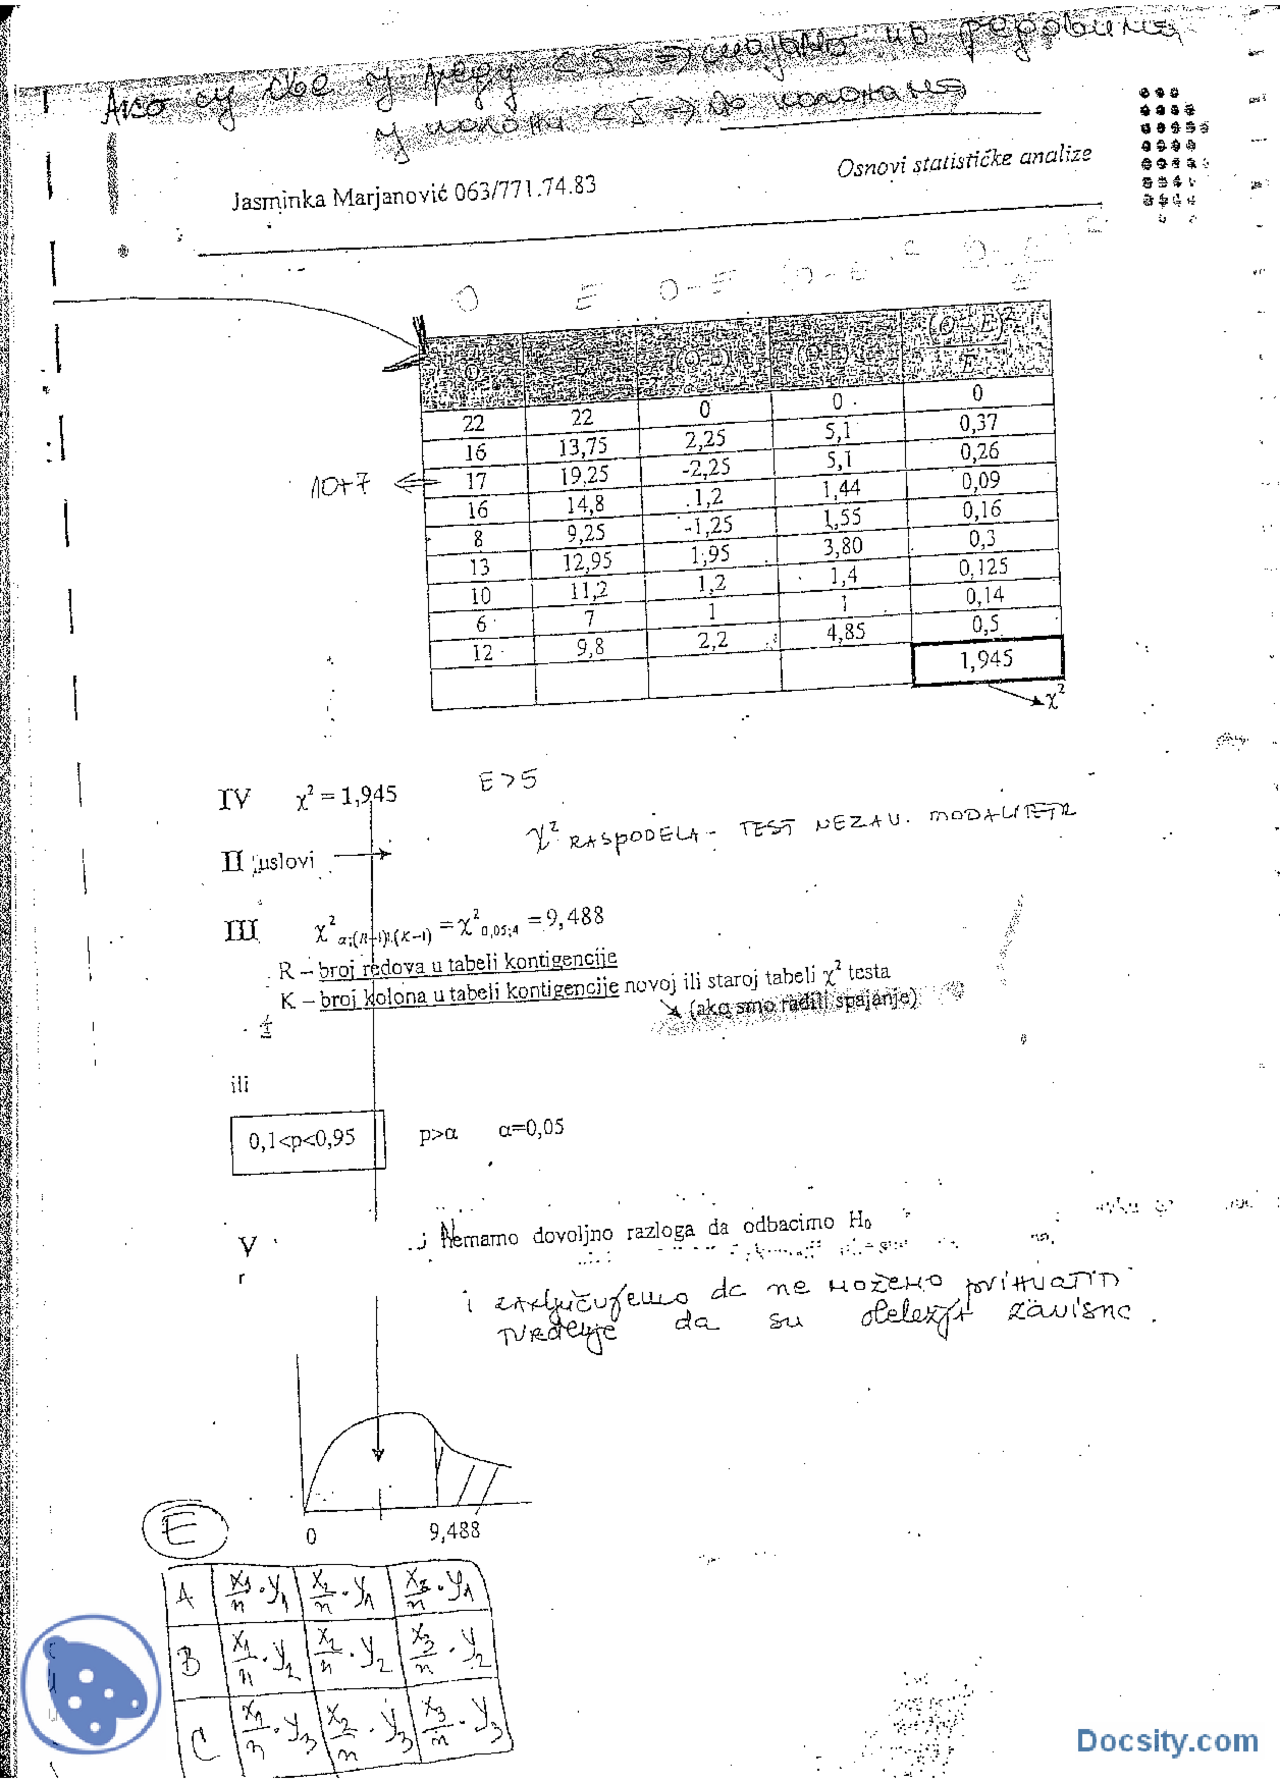 Ако су све у реду < 5 ⇒ спајамо по редовима
у колони < 5 ⇒ по колонама
Osnovi statističke analize
Jasminka Marjanović 063/771.74.83
O E O-E (O-E)² (O-E)²/E
O E (O-E) (O-E)² (O-E)²/E
22 22 0 0 0
16 13,75 2,25 5,1 0,37
10+7 ⇐ 17 19,25 -2,25 5,1 0,26
16 14,8 1,2 1,44 0,09
8 9,25 -1,25 1,55 0,16
13 12,95 1,95 3,80 0,3
10 11,2 1,2 1,4 0,125
6 7 1 1 0,14
12 9,8 2,2 4,85 0,5
1,945
χ²
IV χ² = 1,945 E>5
χ² RASPODELA - TEST NEZAV. MODALITETA
II uslovi
III χ² α;(R-1)·(K-1) = χ² 0,05;4 = 9,488
R – broj redova u tabeli kontigencije
K – broj kolona u tabeli kontigencije novoj ili staroj tabeli χ² testa
(ako smo radili spajanje)
ili
0,1<p<0,95 p>α α=0,05
V Nemamo dovoljno razloga da odbacimo H₀
i zaključujemo da ne možemo prihvatiti
tvrdenje da su obeležja zavisna.
0 9,488
E
A x₁/n · y₁ x₂/n · y₁ x₃/n · y₁
B x₁/n · y₂ x₂/n · y₂ x₃/n · y₂
C x₁/n · y₃ x₂/n · y₃ x₃/n · y₃
Docsity.com